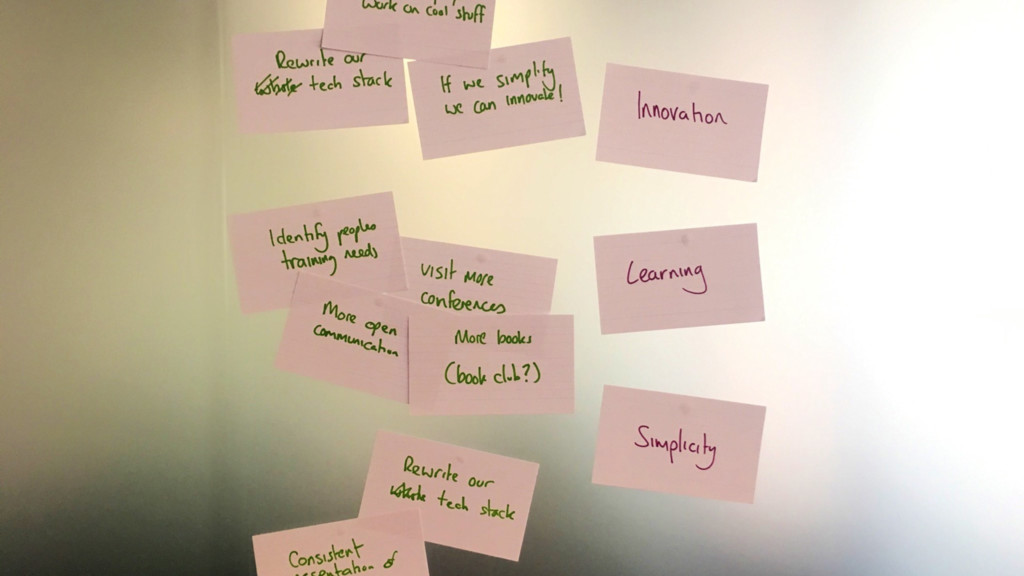 work on cool stuff
Rewrite our
tech stack
If we simplify
we can innovate!
Innovation
Identify peoples
training needs
visit more
conferences
Learning
More open
communication
More books
(book club?)
Simplicity
Rewrite our
tech stack
Consistent